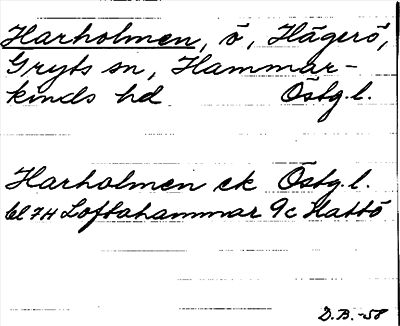 Harholmen, ö, Hägerö,
Gryts sn, Hammar-
kinds hd Östg.l.
Harholmen ek Östg.l.
bl 7H Loftahammar 9c Hattö
D.B.-58